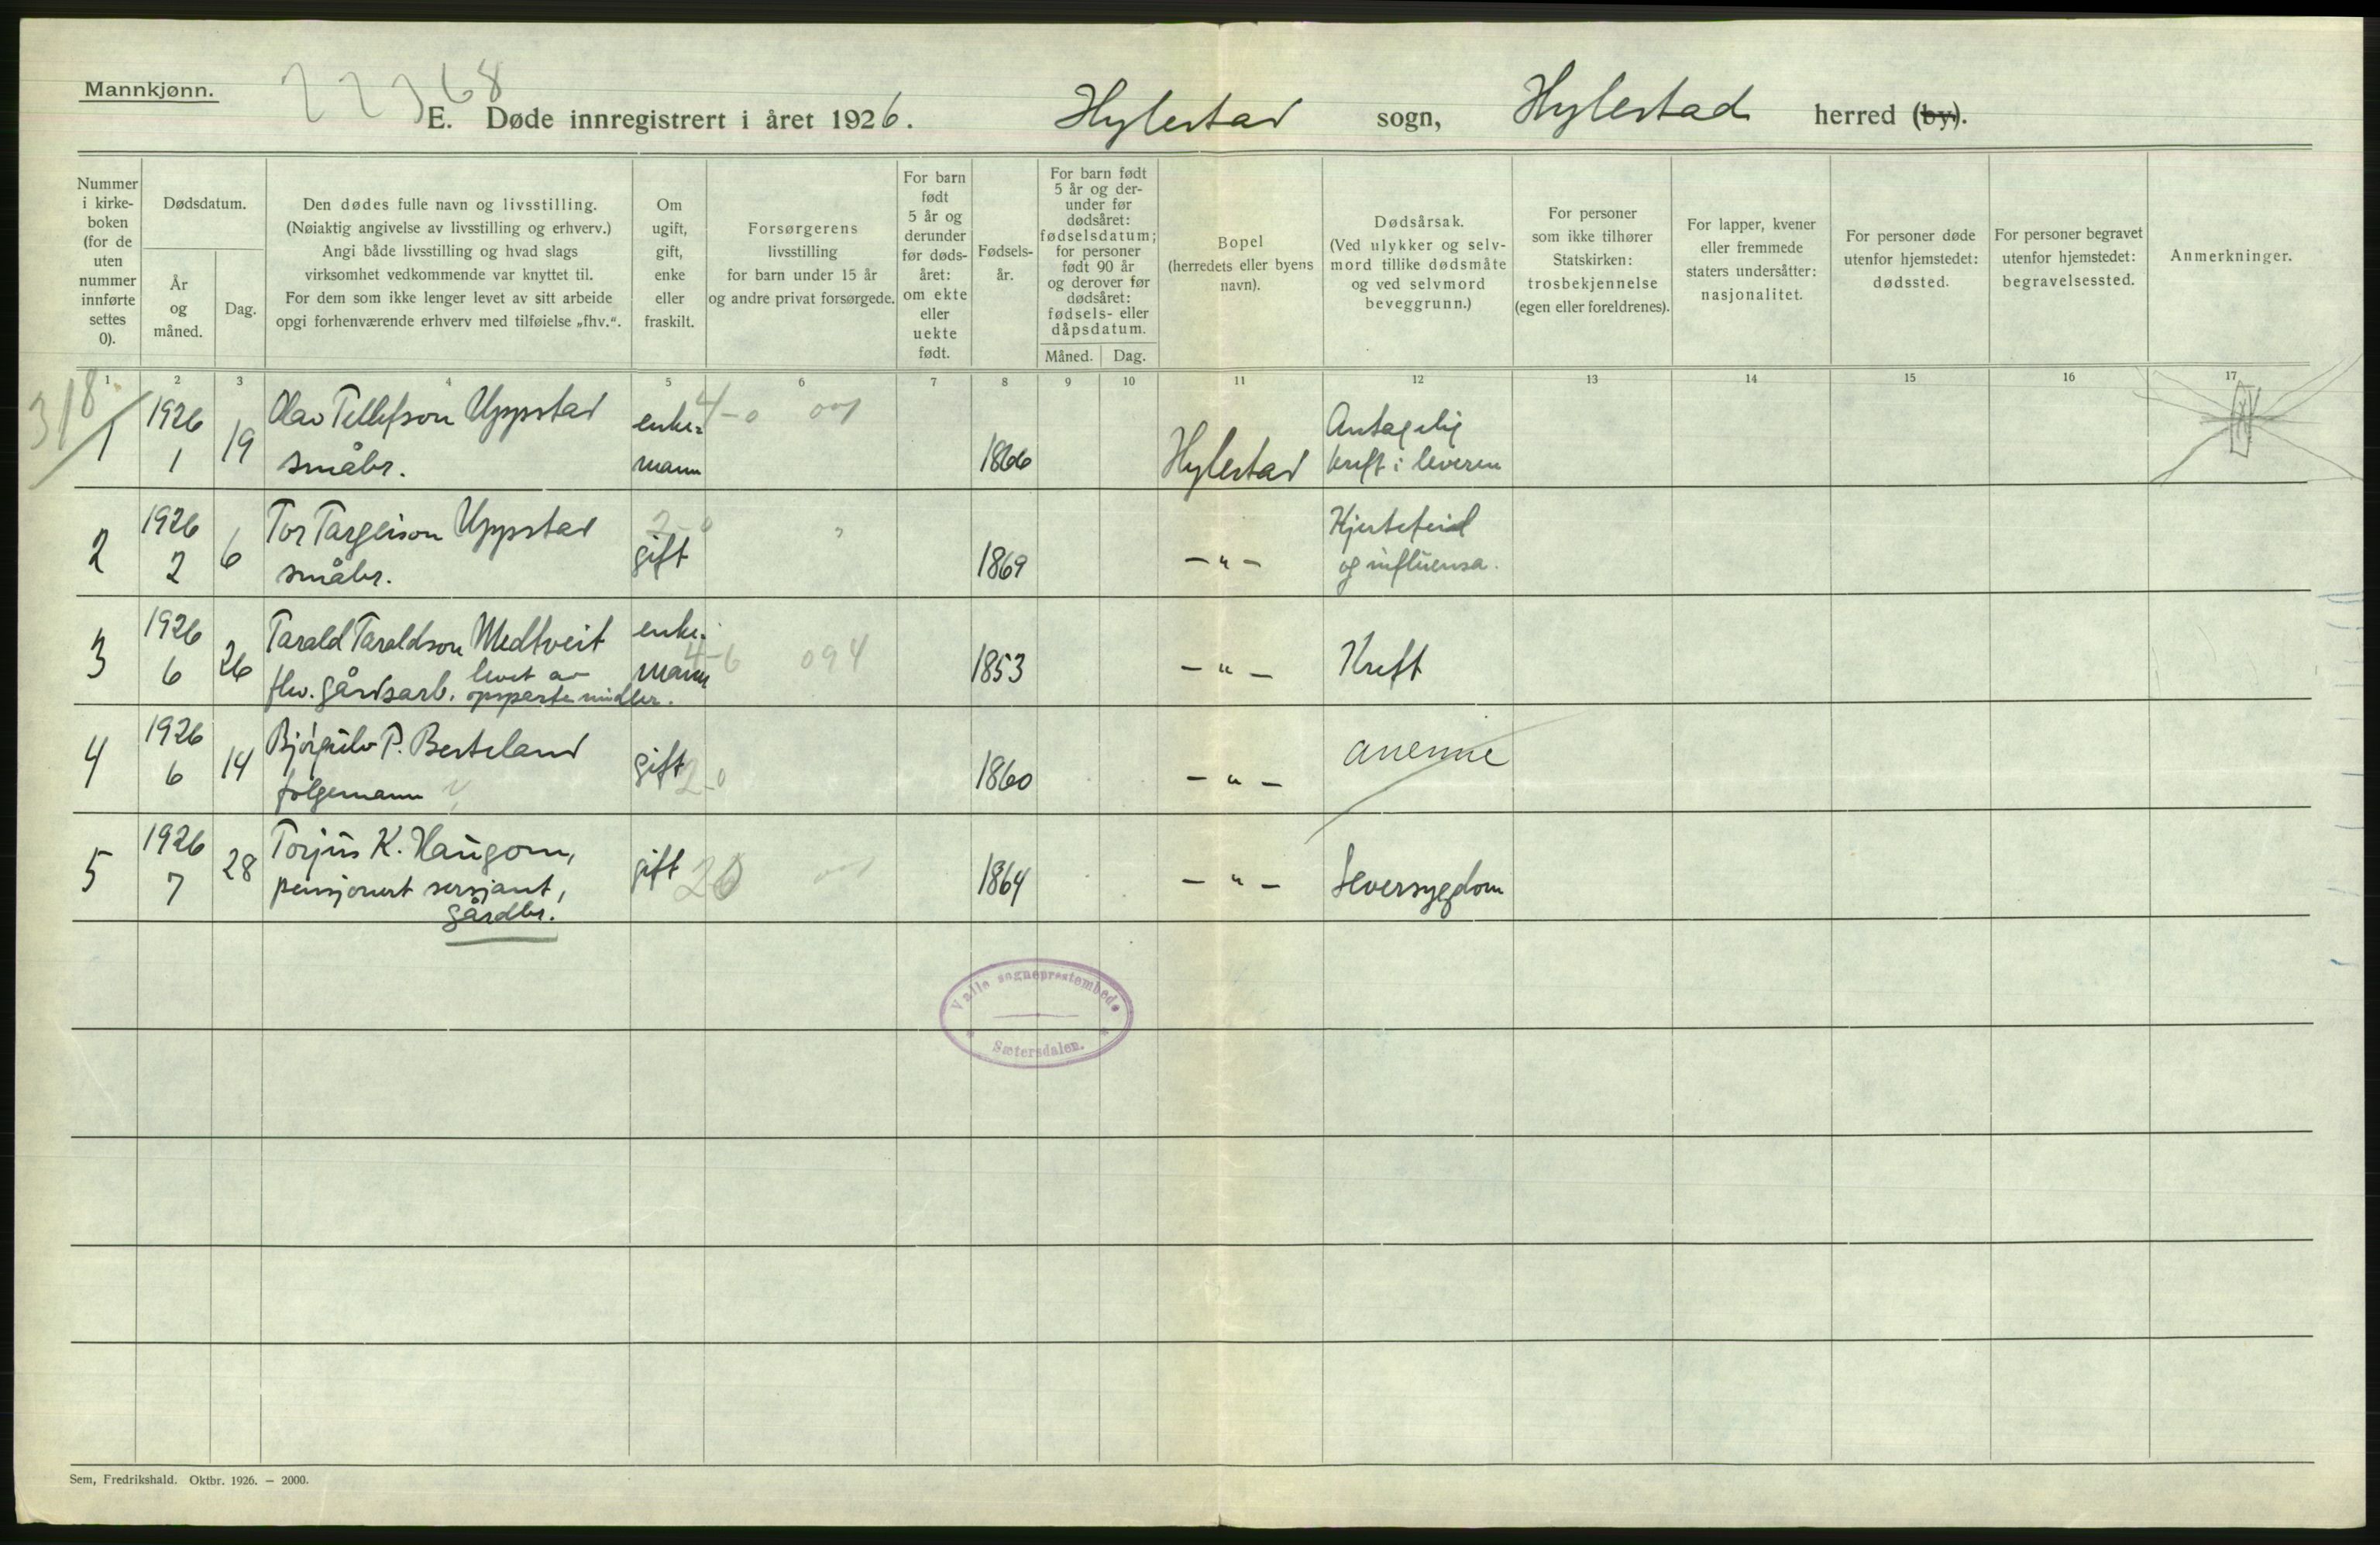 Mannkjønn.
E. Døde innregistrert i året 1926. Hylestad sogn, Hylestad herred (by).
Nummer i kirke-boken (for de uten nummer innførte settes 0).
Dødsdatum.
År og måned.
Dag.
Den dødes fulle navn og livsstilling.
(Nøiaktig angivelse av livsstilling og erhverv.)
Angi både livsstilling og hvad slags
virksomhet vedkommende var knyttet til.
For dem som ikke lenger levet av sitt arbeide
opgi forhenværende erhverv med tilføielse „fhv.“.
Om ugift, gift, enke eller fraskilt.
Forsørgerens
livsstilling
for barn under 15 år
og andre privat forsørgede.
For barn født 5 år og derunder før døds-året: om ekte eller uekte født.
Fødsels-år.
For barn født 5 år og der-under før dødsåret: fødselsdatum; for personer født 90 år og derover før dødsåret: fødsels- eller dåpsdatum.
Måned. Dag.
Bopel
(herredets eller byens
navn).
Dødsårsak.
(Ved ulykker og selv-
mord tillike dødsmåte
og ved selvmord
beveggrunn.)
For personer
som ikke tilhører
Statskirken:
trosbekjennelse
(egen eller foreldrenes).
For lapper, kvener
eller fremmede
staters undersåtter:
nasjonalitet.
For personer døde
utenfor hjemstedet:
dødssted.
For personer begravet
utenfor hjemstedet:
begravelsessted.
Anmerkninger.
1 2 3 4 5 6 7 8 9 10 11 12 13 14 15 16 17
318
1 1926 1 19 Olav Tellefson Uppstad småbr. enke=mann 4-0 1866 Hylestad Antagelig kreft i leveren
2 1926 2 6 Tor Targeison Uppstad småbr. gift 2-0 1869 -"- Hjertefeil og influensa.
3 1926 6 26 Tarald Taraldson Medtveit fhv. gårdsarb. levet av opsparte midler. enke-mann 4-6 094 1853 -"- Kreft
4 1926 6 14 Bjørgulv P. Besteland følgemann gift 2-0 1860 -"- anemie
5 1926 7 28 Torjus K. Haugom, pensjonert sersjant, gårdbr. gift 20 1864 -"- Leversygdom
Valle sogneprestembede
Sætersdalen.
Sem, Fredrikshald. Oktbr. 1926. — 2000.